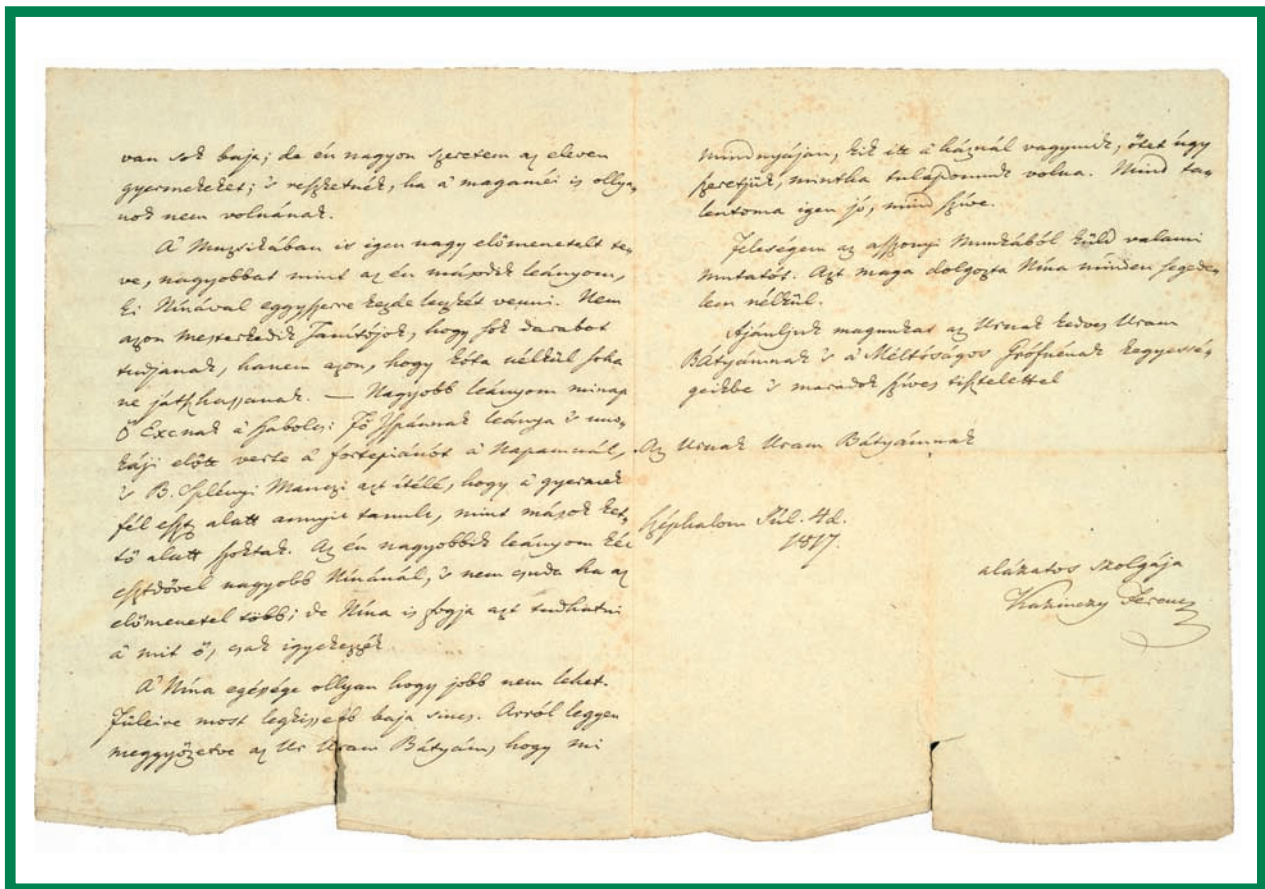 van sok baja; de én nagyon szeretem az eleven
gyermekeket; 's reszketnék, ha a' magaméi is ollya-
nok nem volnának.
A' Muzsikában is igen nagy előmenetelt te-
ve, nagyobbat mint az én második leányom,
ki Ninával eggyszerre kezde leczkét venni. Nem
azon mesterkedik Tanítójok, hogy sok darabot
tudjanak, hanem azon, hogy kóta nélkül soha
ne játszhassanak. — Nagyobb leányom minap
Ő Excnak a' Szabolcsi Fő Ispánnak leánya 's uno-
káji előtt verte a' fortepiánót a' Napamnál,
's B. Splényi Manczi azt ítélé, hogy a' gyermek
fél eszt alatt annyit tanult, mint mások ket-
tő alatt szoktak. Az én nagyobbik leányom két
esztdővel nagyobb Ninánál, 's nem csuda ha az
előmenetel több; de Nina is fogja azt tudhatni
a' mit ő, csak igyekezzék.
A' Nina egészsége ollyan hogy jobb nem lehet.
Füleire most legkissebb baja sincs. Arról legyen
meggyőzetve az Ur Uram Bátyám, hogy mi
mindnyájan, kik itt a' háznál vagyunk, őtet úgy
szeretjük, mintha tulajdonunk volna. Mind ta-
lentoma igen jó, mind szíve.
Feleségem az asszonyi munkából küld valami
mutatót. Azt maga dolgozta Nina minden segede-
lem nélkül.
Ajánljuk magunkat az Urnak kedves Uram
Bátyámnak 's a' Méltóságos Grófnénak kegyessé-
geikbe 's maradok szíves tisztelettel
Az Urnak Uram Bátyámnak
Széphalom Júl. 4d.
1817.
alázatos szolgája
Kazinczy Ferencz